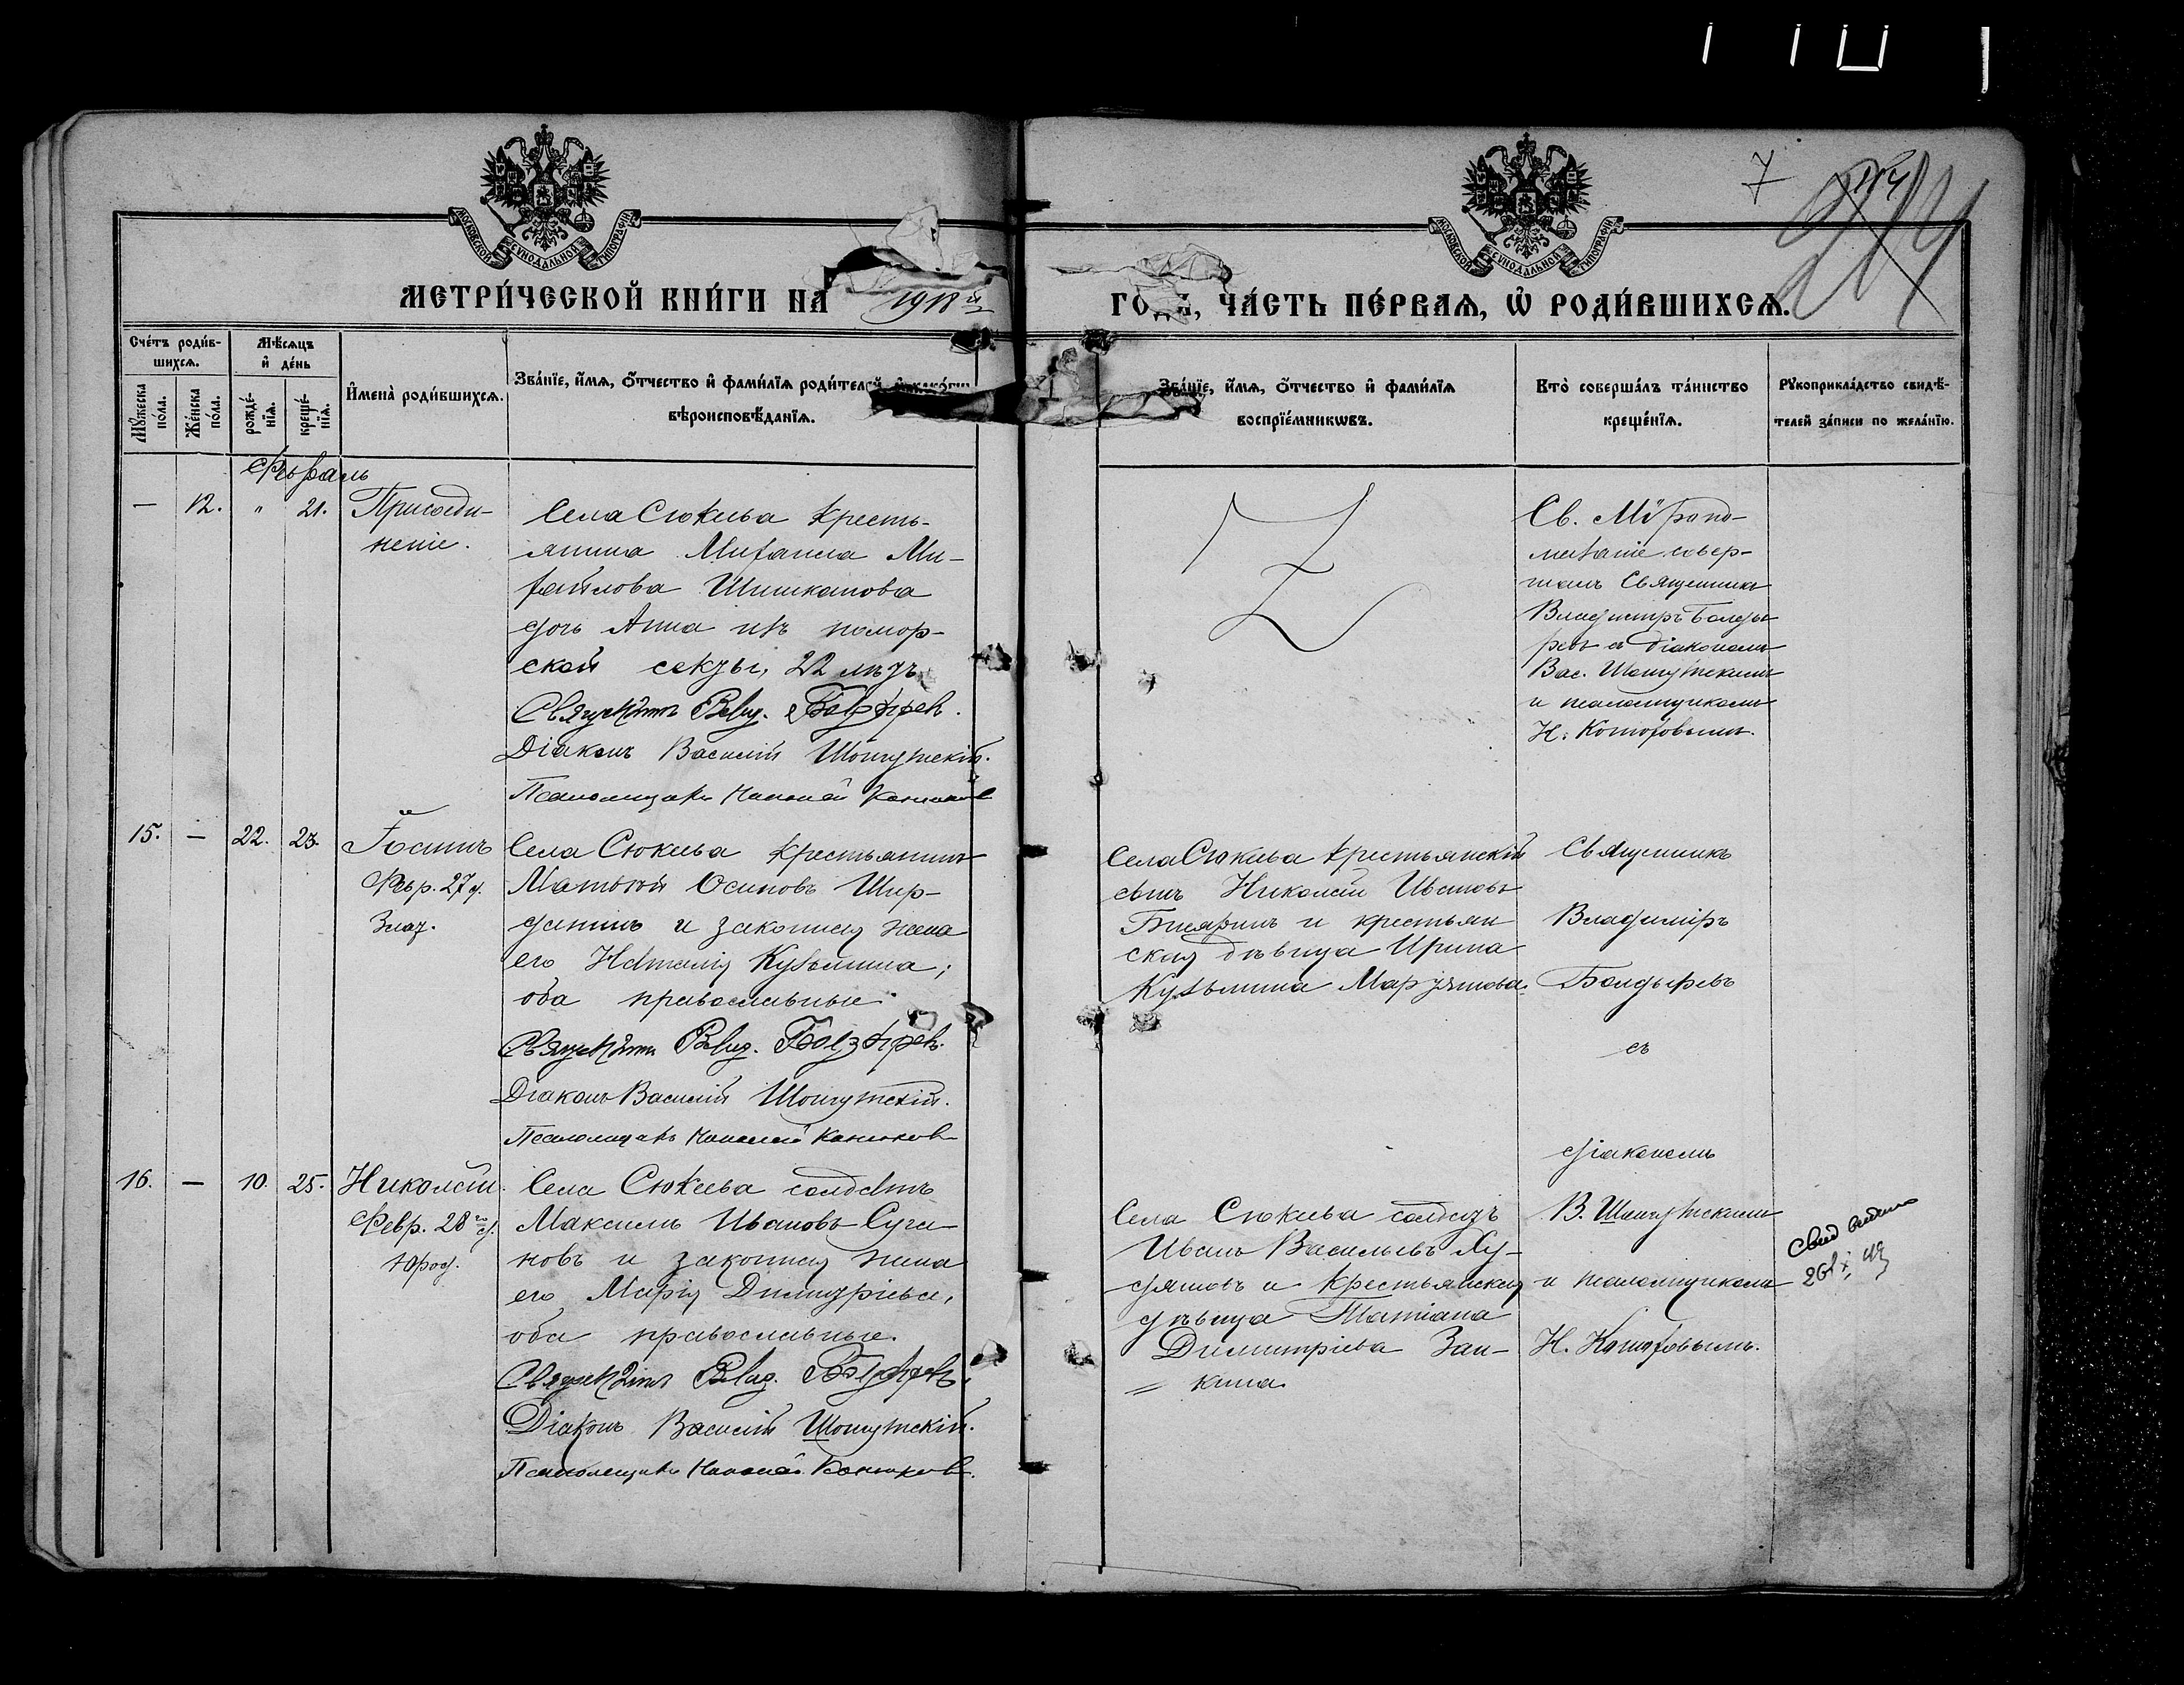 7
МОСКОВСКОЙ СѴНОДАЛЬНОЙ ТИПОГРАФІИ
МОСКОВСКОЙ СѴНОДАЛЬНОЙ ТИПОГРАФІИ
МЕТРИ́ЧЕСКОЙ КНИ́ГИ НА 1918 й
ГОДЪ, ЧА́СТЬ ПЕ́РВАЯ, Ѡ РОДИ́ВШИХСЯ.
Сче́тъ роди́в-
шихся.
Мꙋ́жеска по́ла.
Же́нска по́ла.
Мѣ́сяцъ
и҆ де́нь
рожде́-нїя.
креще́-нїя.
И҆мена̀ роди́вшихся.
Зва́нїе, и҆́мя, ѻ҆́тчество и҆ фами́лїя роди́телей, и҆ како́гѡ
вѣроисповѣ́данїя.
Зва́нїе, и҆́мя, ѻ҆́тчество и҆ фами́лїя
воспрїе́мникѡвъ.
Кто̀ соверша́лъ та́инство
креще́нїя.
Рꙋкоприкла́дство свидѣ́-
телей за́писи по жела́нїю.
Февраль
— 12. " 21.
Присоеди-
неніе.
Села Сюкеева кресть-
янина Михаила Ми-
хайлова Шишканова
дочь Анна изъ помор-
ской секты, 22 лѣтъ.
Священникъ Влад. Болдырев.
Діаконъ Василій Шошутскій.
Псаломщикъ Николай
Св. Мѵропо-
мазаніе совер-
шалъ Священникъ
Владимиръ Болды
ревъ съ діакономъ
Вас. Шошутскимъ
и псаломщикомъ
Н.
15. — 22. 23.
Іоаннъ
Февр. 27 д.
Злат.
Села Сюкеева крестьянинъ
Матвѣй Осиповъ Шир-
данинъ и законная жена
его Наталія Кузьмина;
оба православные.
Священникъ Влад. Болдырев.
Діаконъ Василій Шошутскій.
Псаломщикъ Николай
Села Сюкеева крестьянскій
сынъ Николай Ивановъ
и крестьян
ская дѣвица Ирина
Кузьмина
Священникъ
Владиміръ
Болдыревъ
съ
діакономъ
16. — 10. 25.
Николай.
Февр. 28 го д.
Юрод.
Села Сюкеева солдатъ
Максимъ Ивановъ Суча-
новъ и законная жена
его Марія Димитріева,
оба православные.
Священникъ Влад. Болдырев.
Діаконъ Василій Шошутскій.
Псаломщикъ Николай
Села Сюкеева солдатъ
Иванъ Васильевъ Ху-
дяшовъ и крестьянская
дѣвица Татіана
Димитріева Заи-
= кина.
В. Шошутскимъ
и псаломщикомъ
Н.